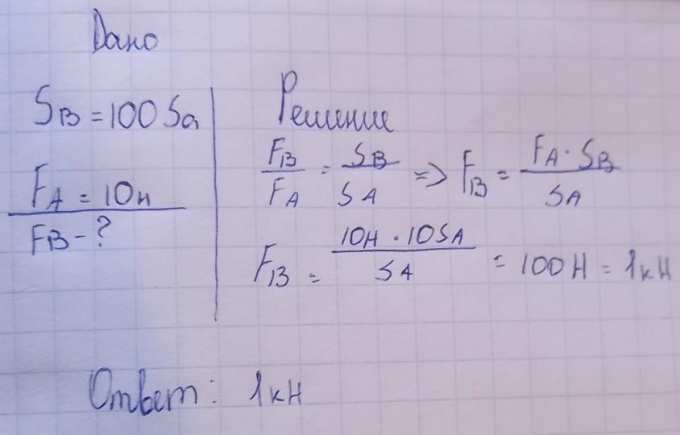 Дано
S_B = 100 S_a
F_A = 10н
F_B - ?
Решение
F_B / F_A = S_B / S_A => F_B = F_A · S_B / S_A
F_B = 10Н · 10S_A / S_A = 100Н = 1кН
Ответ: 1кН